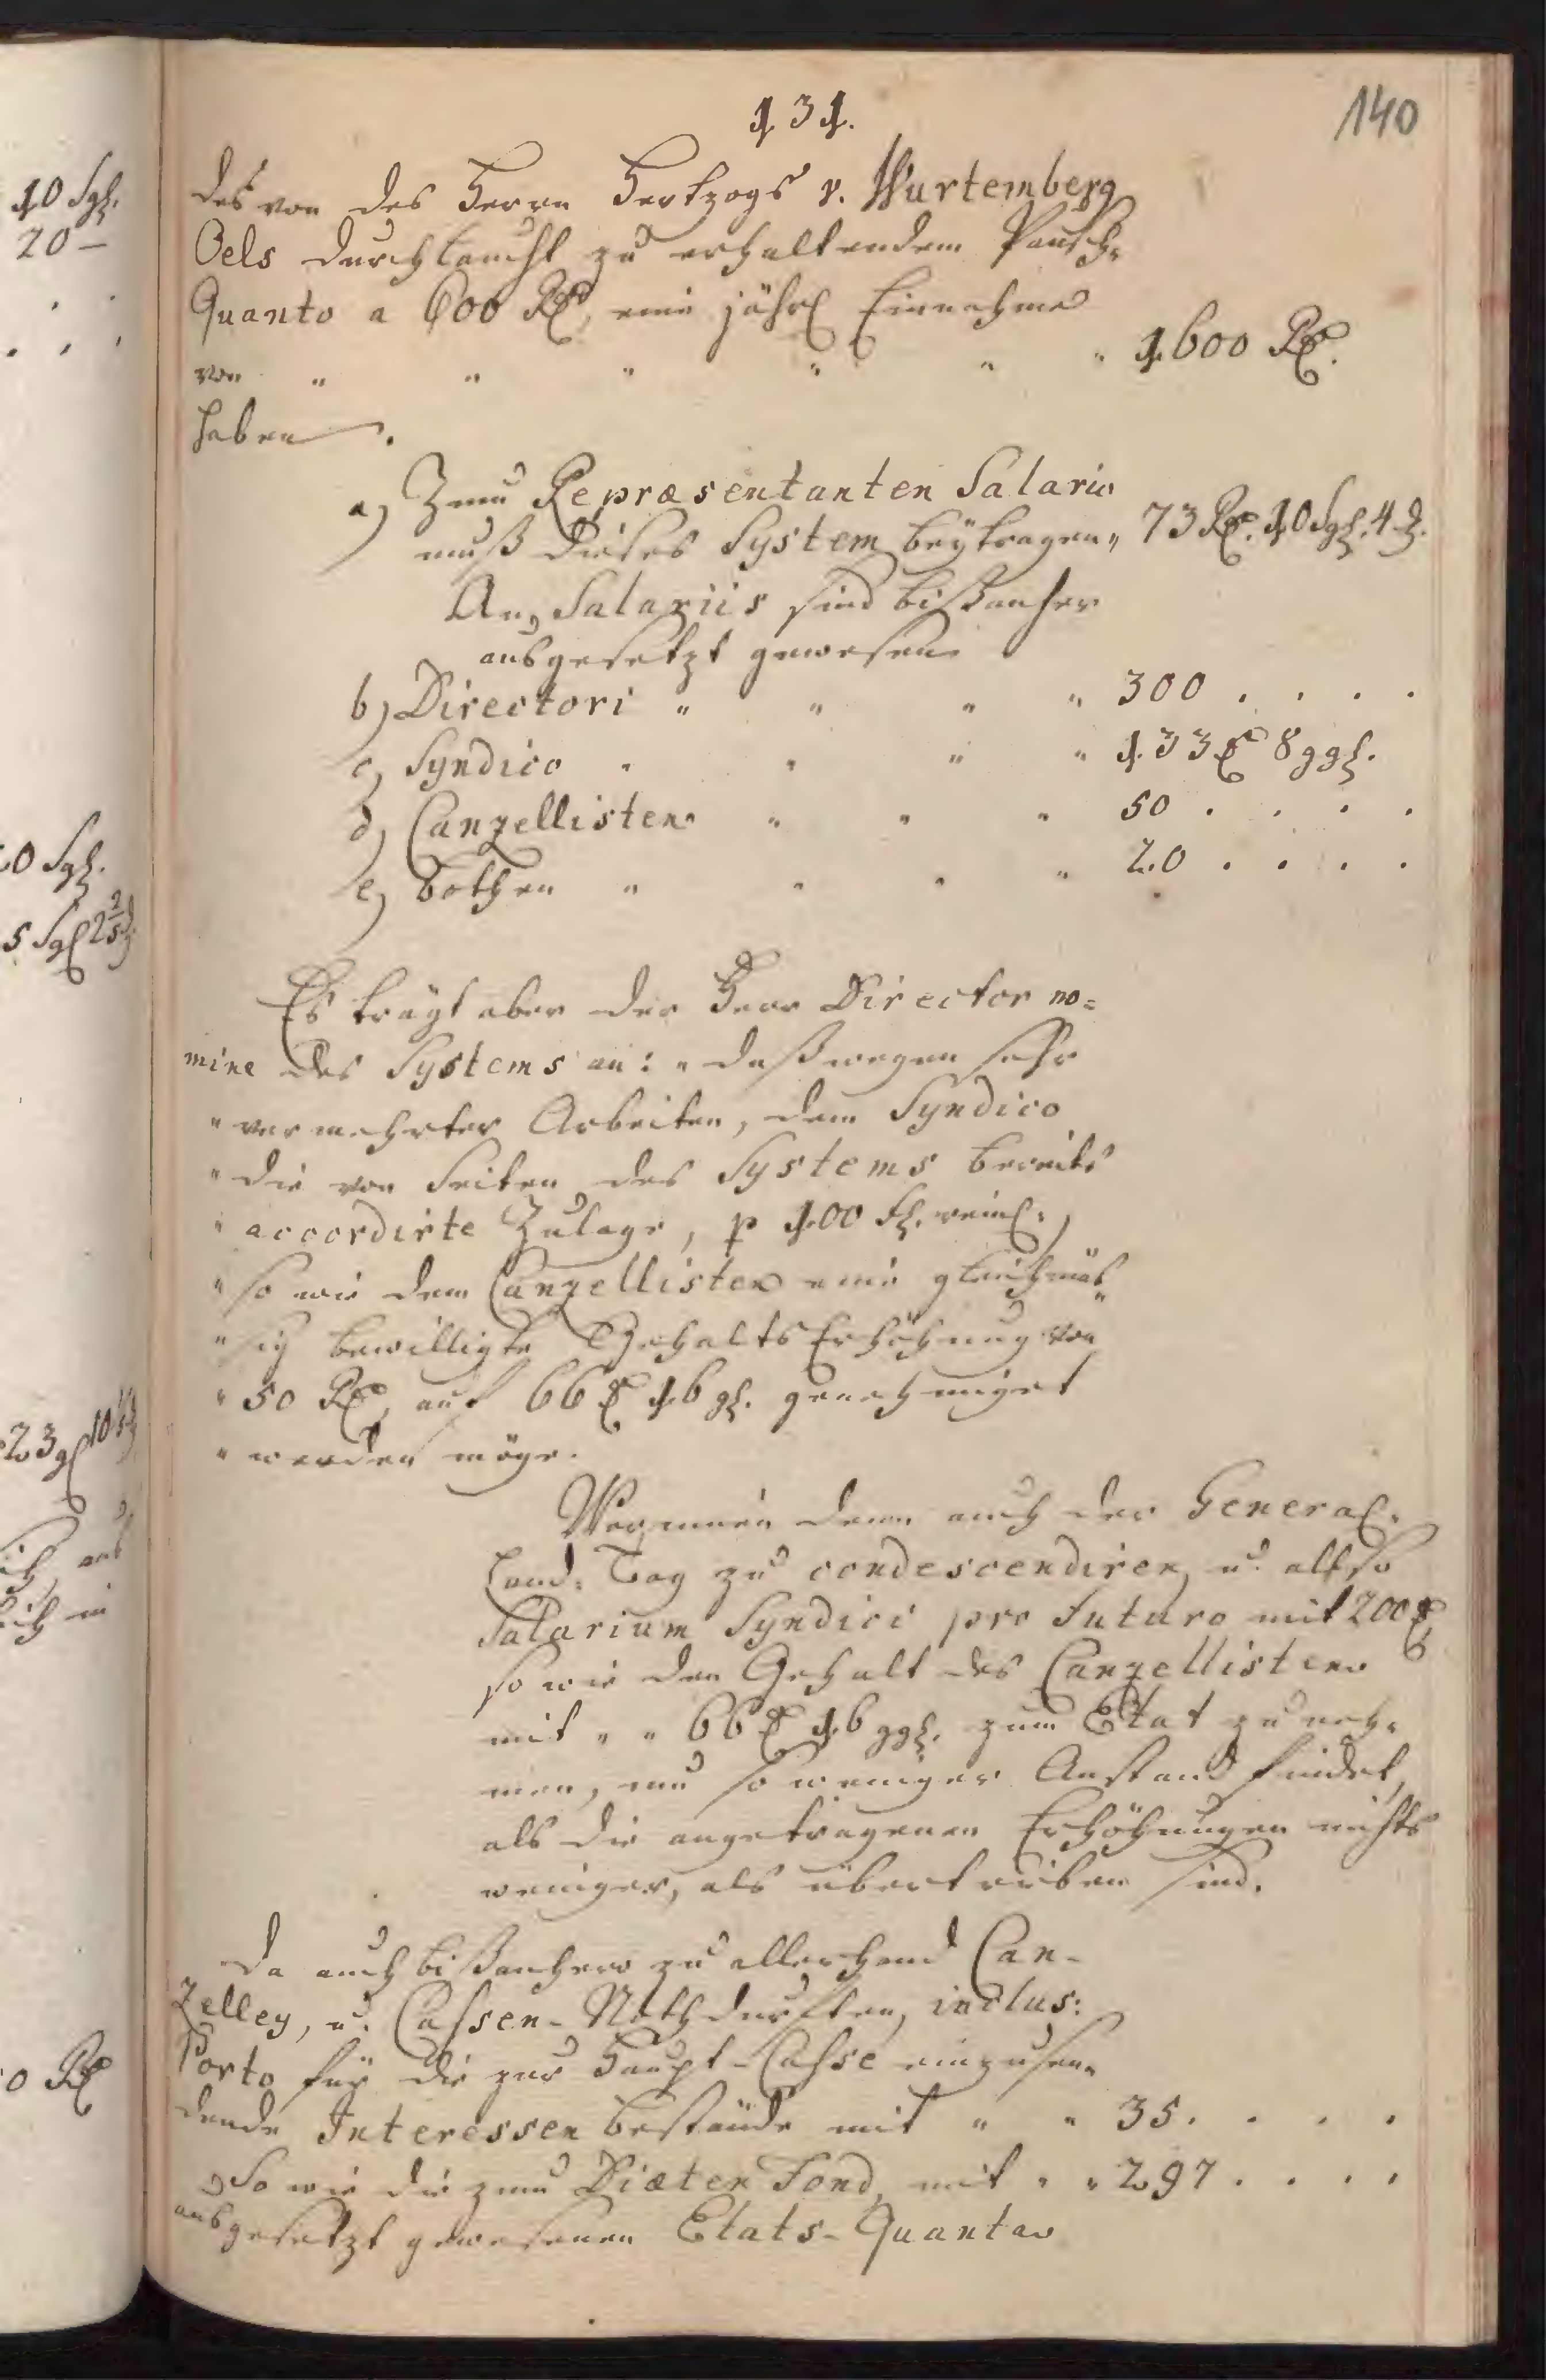 131.
140
des von des Herrn Hertzogs v. Wurtemberg
Oels Durchlaucht zu erhaltendem Pausch-
Quanto a 600 Rℓ, eine jährl Einnahme
von " " " " " " 1600 Rℓ.
haben.
a) Zum Repræsentanten Salario
muß dieses System beÿtragen " 73 Rℓ. 10 Sgl. 4 d.
An Salariis sind bißanher
ausgesetzt gewesen
b) Directori " " " " 300 . . . .
c) Syndico " " " " 133 rℓ 8 ggl.
d) Canzellisten " " " 50 . . . .
e) Bothen " " " " 20 . . . .
Es trägt aber der Herr Director no=
mine des Systems an: " daß wegen sehr
" vermehrter Arbeiten, dem Syndico
" die von Seiten des Systems bereits
" accordirte Zulage, p 100 fl. reinl.
" so wie dem Canzellisten eine gleichmäs-
" sig bewilligte Gehalts Erhöhung von
" 50 Rℓ, auf 66 rℓ 16 gl. genehmiget
" werden möge.
Wogmein denn auch der General-
Land-Tag zu condescendiren, u. also
Salarium Syndici pro futuro mit 200 rℓ
so wie den Gehalt des Canzellisten
mit " " 66 rℓ 16 ggl. zum Etat zu neh-
men, um so weniger Anstand findet,
als die angetragenen Erhöhungen nichts
weniger, als übertrieben sind.
Da auch bißanhero zu allerhand Can-
zelley, u. Cassen-Nothdurften, inclus:
Porto für die zur Haupt-Casse einzusen-
dende Interessen bestände mit " " 35 . . . .
So wie die zum Diæten Fond, mit " " 297 . . . .
ausgesetzt gewesenen Etats-Quanta
10 Sgl.
20 —
0 Sgl.